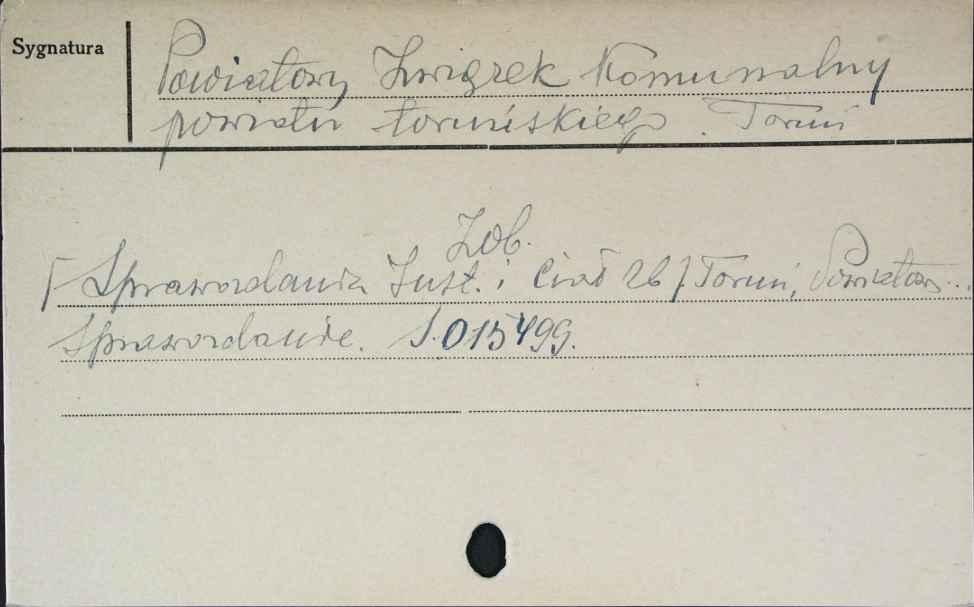 Sygnatura
Powiatowy Związek Komunalny
powiatu toruńskiego. Toruń
Zob.
[Sprawozdania Inst. i Ciał zb] Toruń, Powiatow...
Sprawozdanie. S.015499.